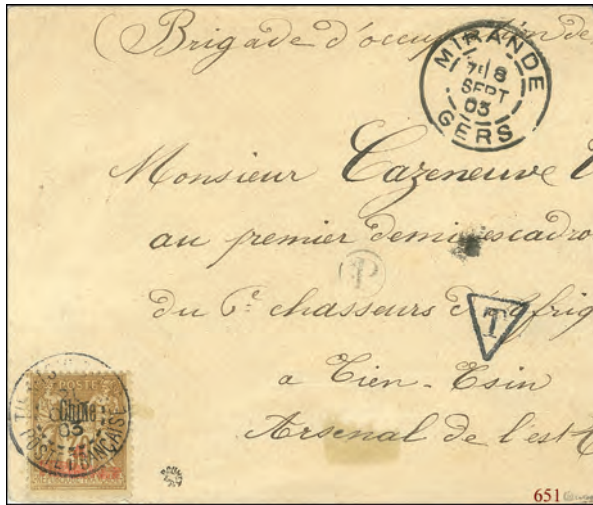 (Brigade d'occupation de
MIRANDE
7 8
SEPT
03
GERS
Monsieur Cazeneuve
au premier demi escadro
P
du 6e chasseurs d'afriq
T
a Tien-Tsin
POSTE
Chine
03
POSTE FRANÇAISE
Arsenal de l'est
651